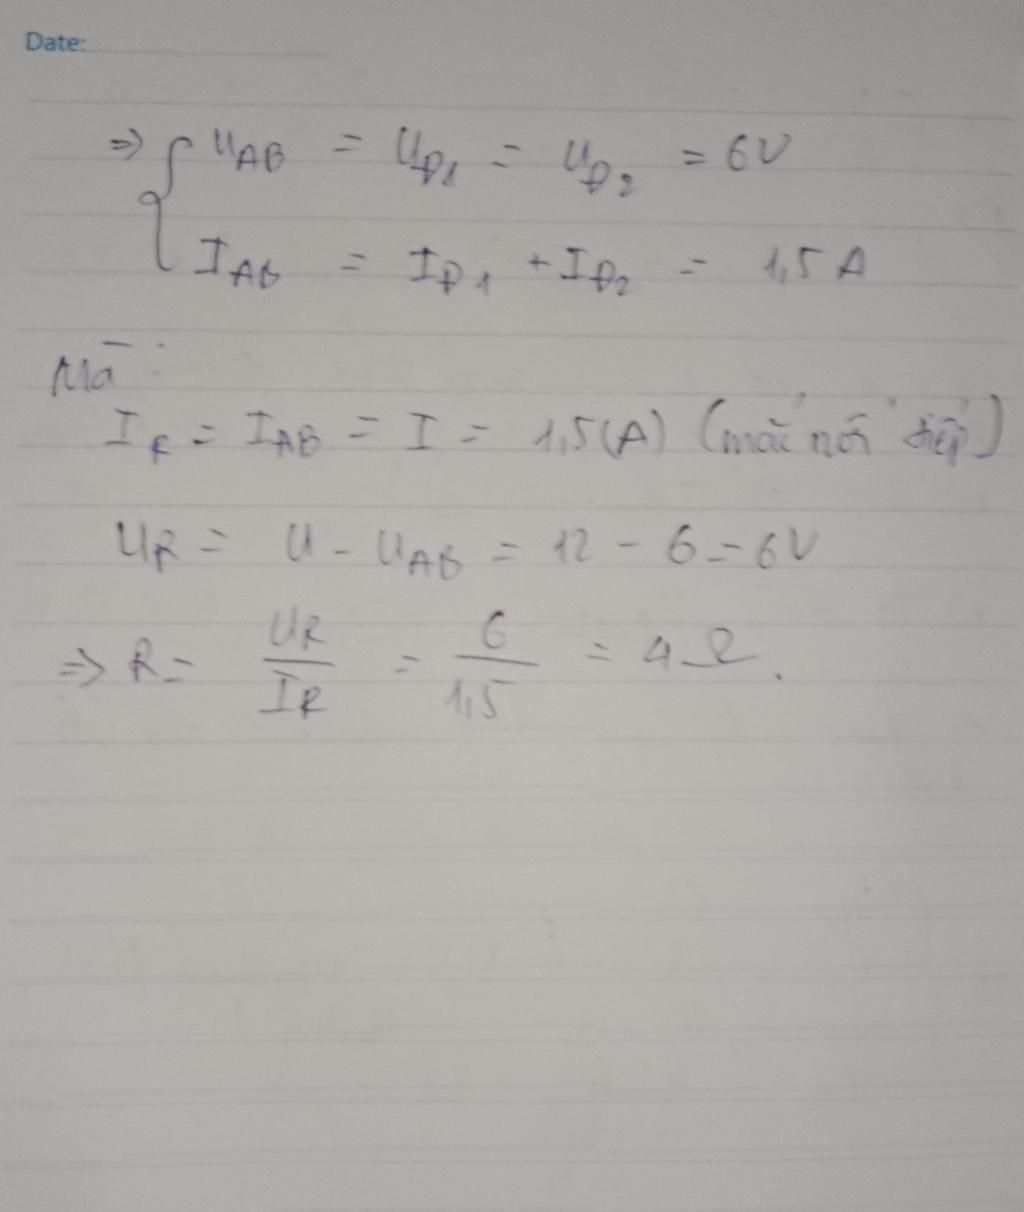 Date:
⇒ { U_AB = U_Đ1 = U_Đ2 = 6V
I_AB = I_Đ1 + I_Đ2 = 1,5 A
Mà :
I_R = I_AB = I = 1,5(A) (mắc nối tiếp)
U_R = U - U_AB = 12 - 6 = 6V
⇒ R = U_R / I_R = 6 / 1,5 = 4 Ω.